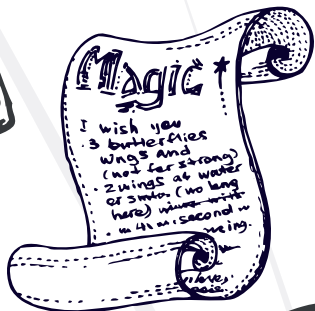 Magic
I wish you
3 butterflies
wings and
(not for strong)
2 wings at water
or (no long
here)
second
wing.
love,